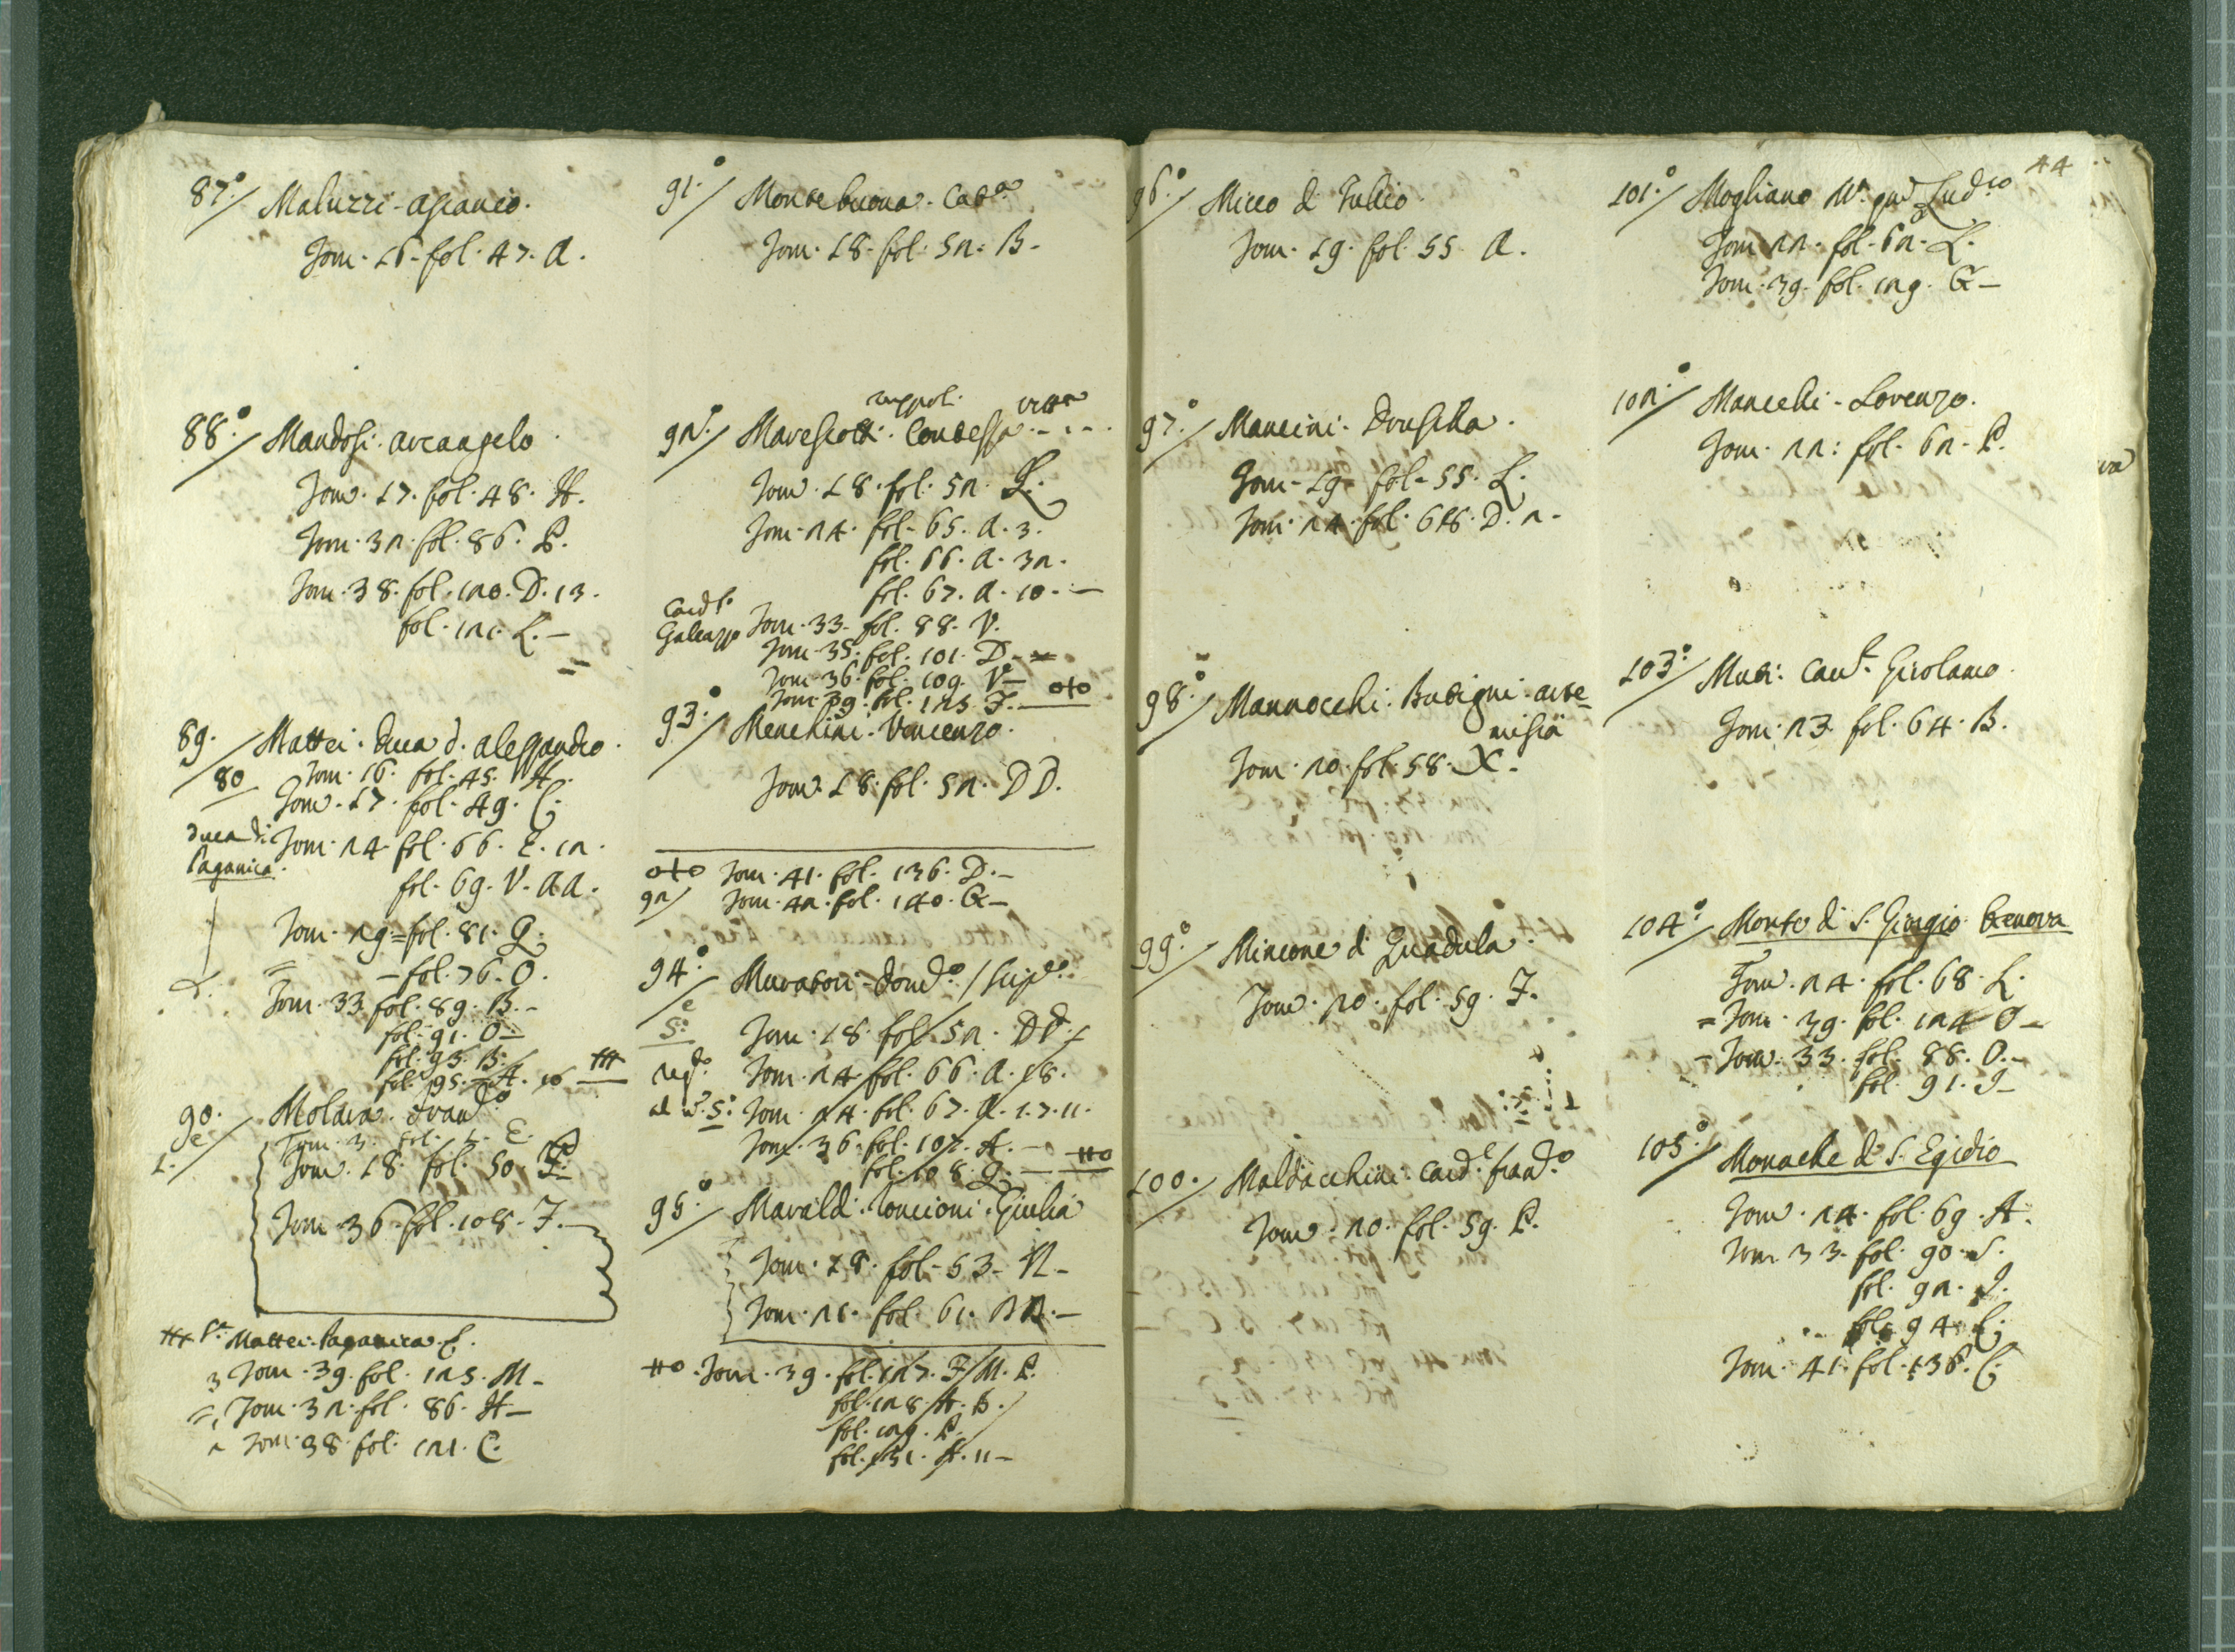 44
87°./ Maluzzi - Ascanio.
Tom. 16. fol. 47. A.
88°./ Mandosi. Arcangelo.
Tom. 17. fol. 48. H.
Tom. 32. fol. 86. P.
Tom. 38. fol. 120. D. 13.
fol. 121. L. -
89./ Mattei. Duca d. Alessandro.
80 Tom. 16. fol. 45. H.
Tom. 17. fol. 49. C.
Duca di Paganica. Tom. 24. fol. 66. E. 12.
fol. 69. V. AA.
Tom. 29. = fol. 81. Q.
- fol. 76. O.
Tom. 33. fol. 89. B. -
fol. 91. O -
fol. 93. B.
fol. 95. H. 16
90./ Molara.
Tom. 3. fol.
Tom. 18. fol. 50. P.
Tom. 36. fol. 108. F. -
Mattei. Paganica.
3 Tom. 39. fol. 125. M -
= Tom. 32. fol. 86. H -
Tom. 38. fol. 121. C.
91°./ Montebuona. Cat.a
Tom. 18. fol. 52. B -
ruppoli. vitt.a
92°./ Marescotti. Contessa - . - .
Tom. 18. fol. 52. L.
Tom. 24. fol. 65. A. 3.
fol. 66. A. 32.
fol. 67. A. 10. -
Card.l Galeazzo Tom. 33. fol. 88. V.
Tom. 35. fol. 101. D -
Tom. 36. fol. 109. V -
Tom. 39. fol. 125. F. - oto
93°./ Menchini. Vincenzo.
Tom. 18. fol. 52. DD.
oto Tom. 41. fol. 136. D. -
92/ Tom. 42. fol. 140. G -
94°./ Muratori
Tom. 18. fol. 52. DD.
Tom. 24. fol. 66. A. 18.
Tom. 24. fol. 67. A. 1. 7. 11.
Tom. 36. fol. 107. H. -
fol. 108. Q. -
95°./ Maraldi. Concioni. Giulia
Tom. 18. fol. 53. N -
Tom. 21. fol. 61. BB. -
Tom. 39. fol. 127. F. M. P.
fol. 128. H. B.
fol. 129. P.
fol. 131. H. 11 -
96°./ Micco di Tullio.
Tom. 19. fol. 55. A.
97°./ Mancini. Drusilla.
Tom. 19. fol. 55. L.
Tom. 24. fol. 68. D. 2 -
98°./ Mannocchi. Butigni. Arte-
misia
Tom. 20. fol. 58. X -
99°./ Mincone di Quadula.
Tom. 20. fol. 59. F.
100./ Maldacchini. Card.l Fran.co
Tom. 20. fol. 59. P.
101°./ Mogliano
Tom. 22. fol. 62. L.
Tom. 39. fol. 129. G -
102°/ Mancchi - Lorenzo.
Tom. 22: fol. 62. P.
103°./ Muti. Cav.r Girolamo.
Tom. 23. fol. 64. B.
104°./ Monte di S. Giorgio Genova
Tom. 24. fol. 68. L.
= Tom. 39. fol. 124 O -
- Tom. 33. fol. 88. O. -
fol. 91. I -
105°./ Monache di S. Egidio
Tom. 24. fol. 69. H.
Tom. 33. fol. 90. S.
fol. 92. I.
fol. 94. L.
Tom. 41. fol. 136. C.